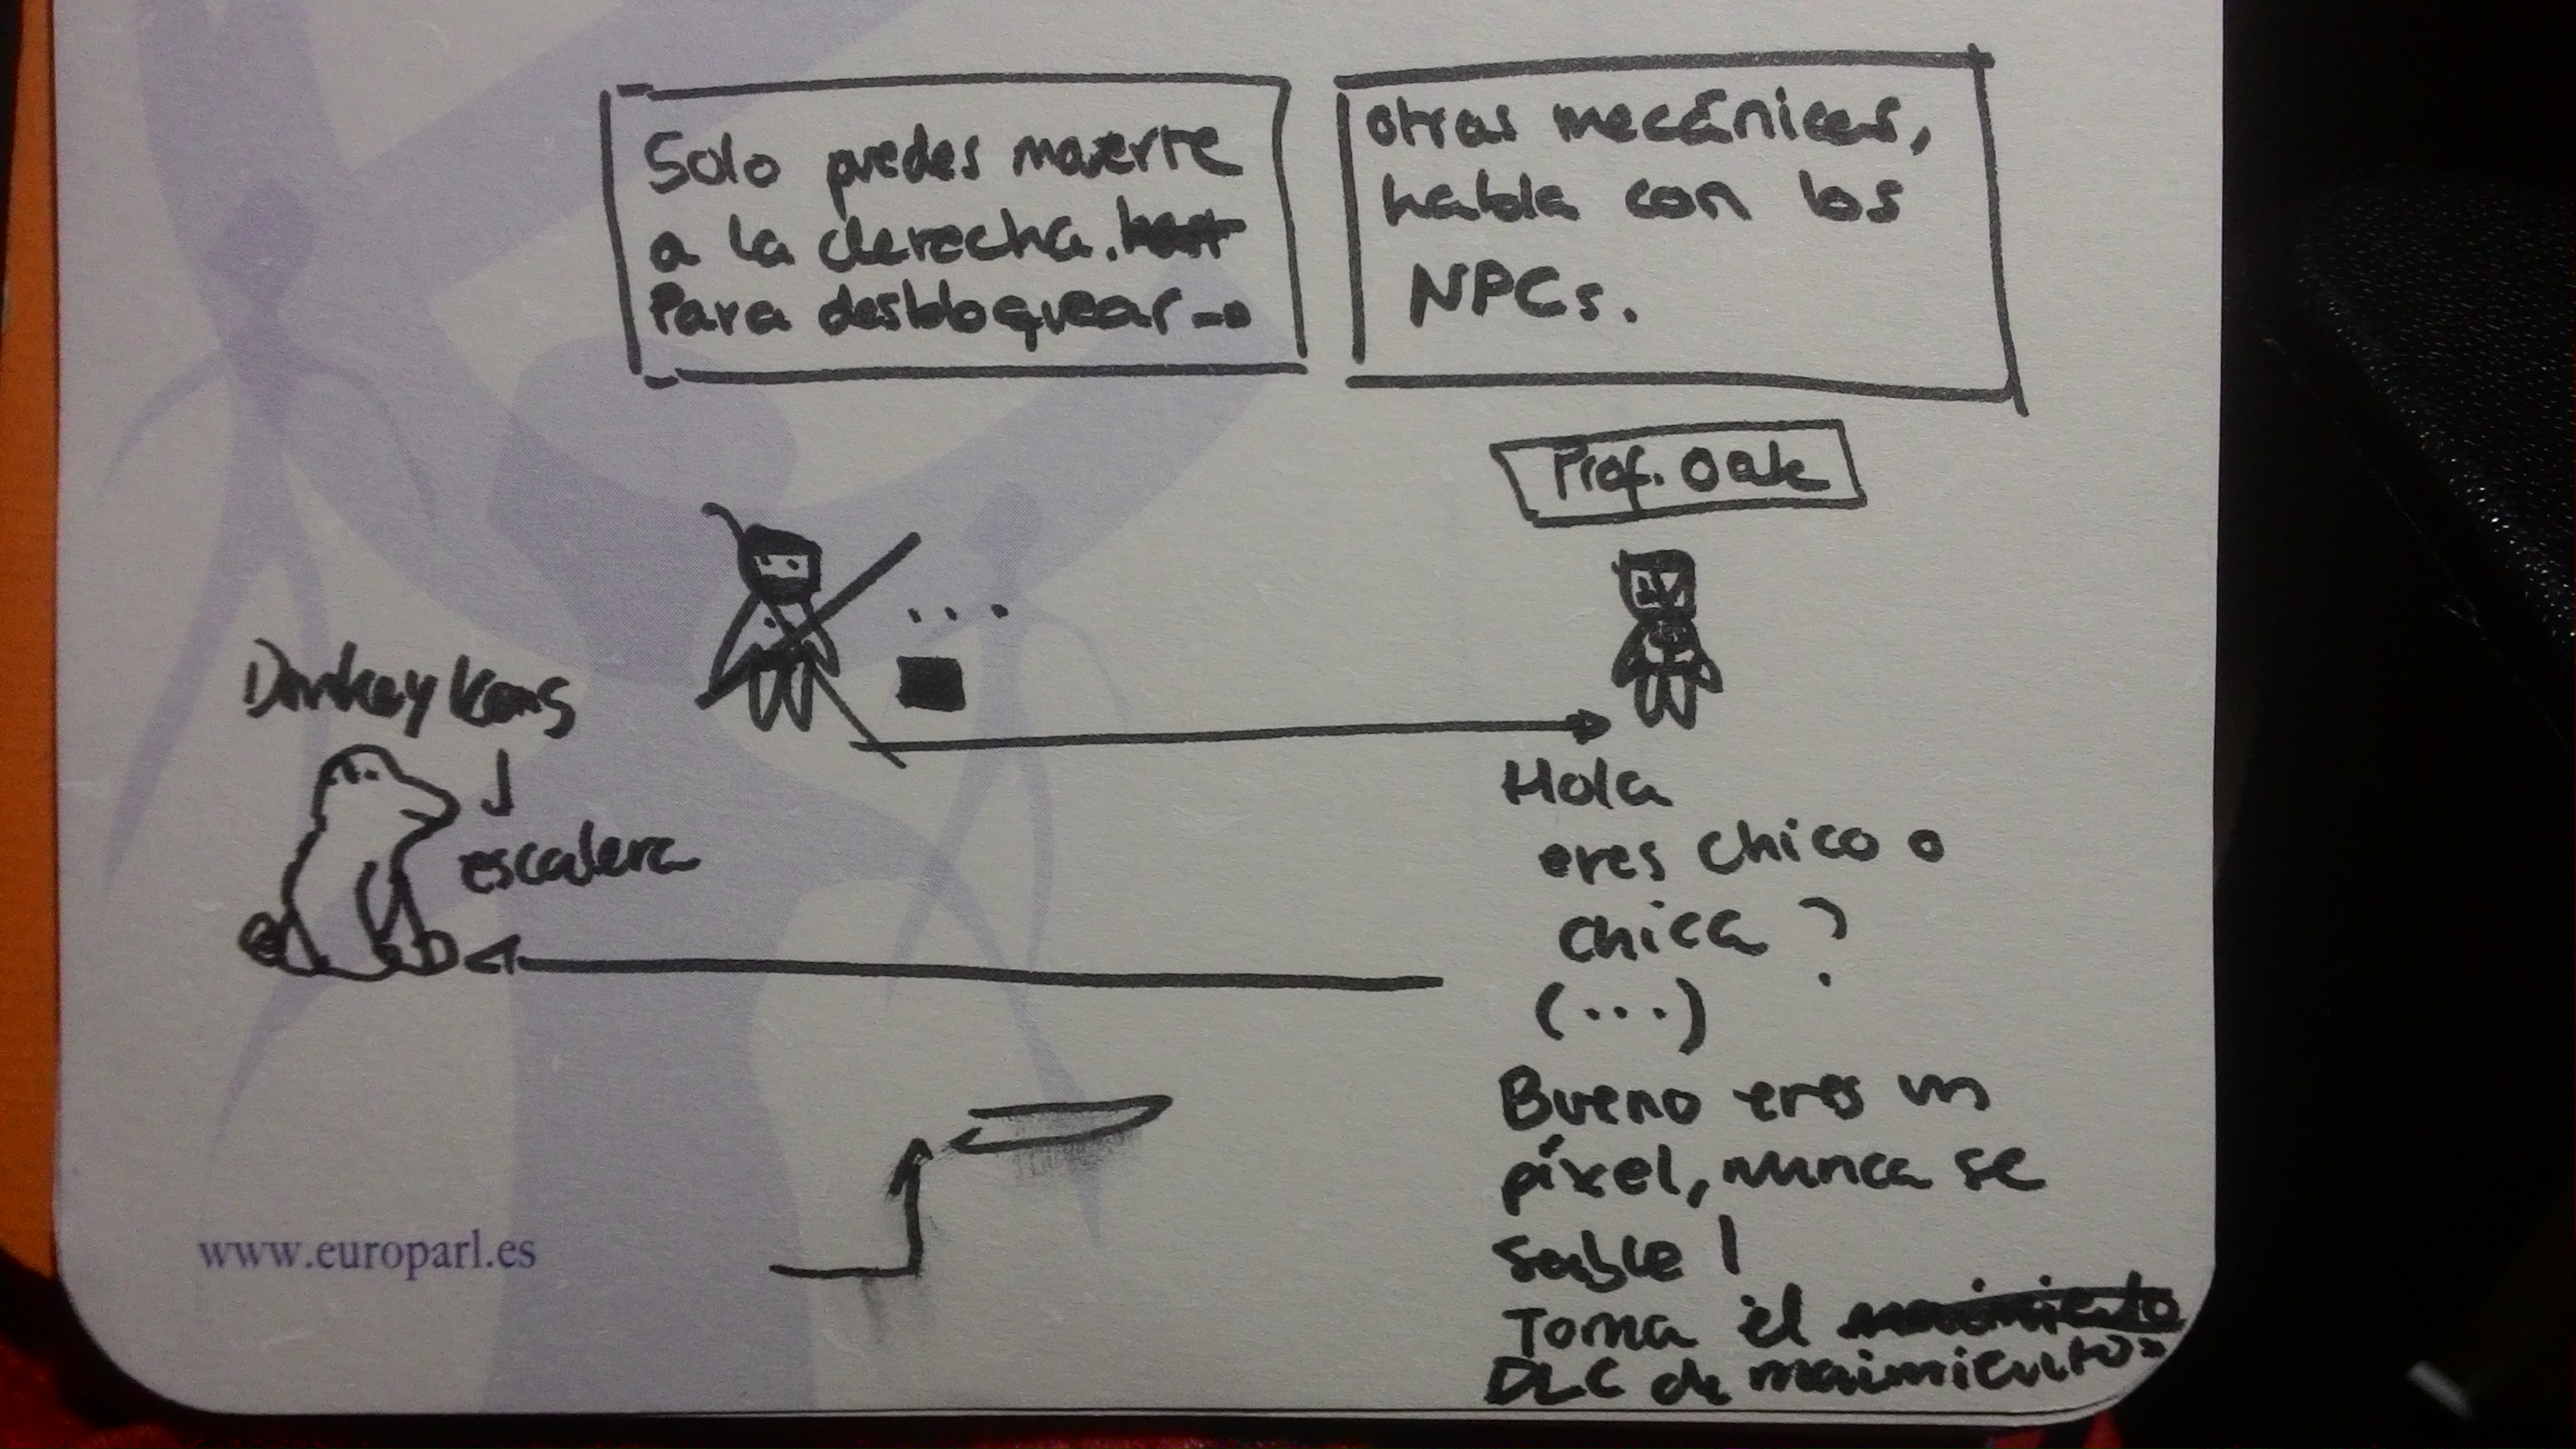 Solo puedes moverte
a la derecha.
Para desbloquear
otras mecánicas,
habla con los
NPCs.
Prof. Oak
...
Donkey Kong
escalera
Hola
eres chico o
chica ?
(...)
Bueno eres un
píxel, nunca se
sabe !
Toma el movimiento
DLC de
www.europarl.es